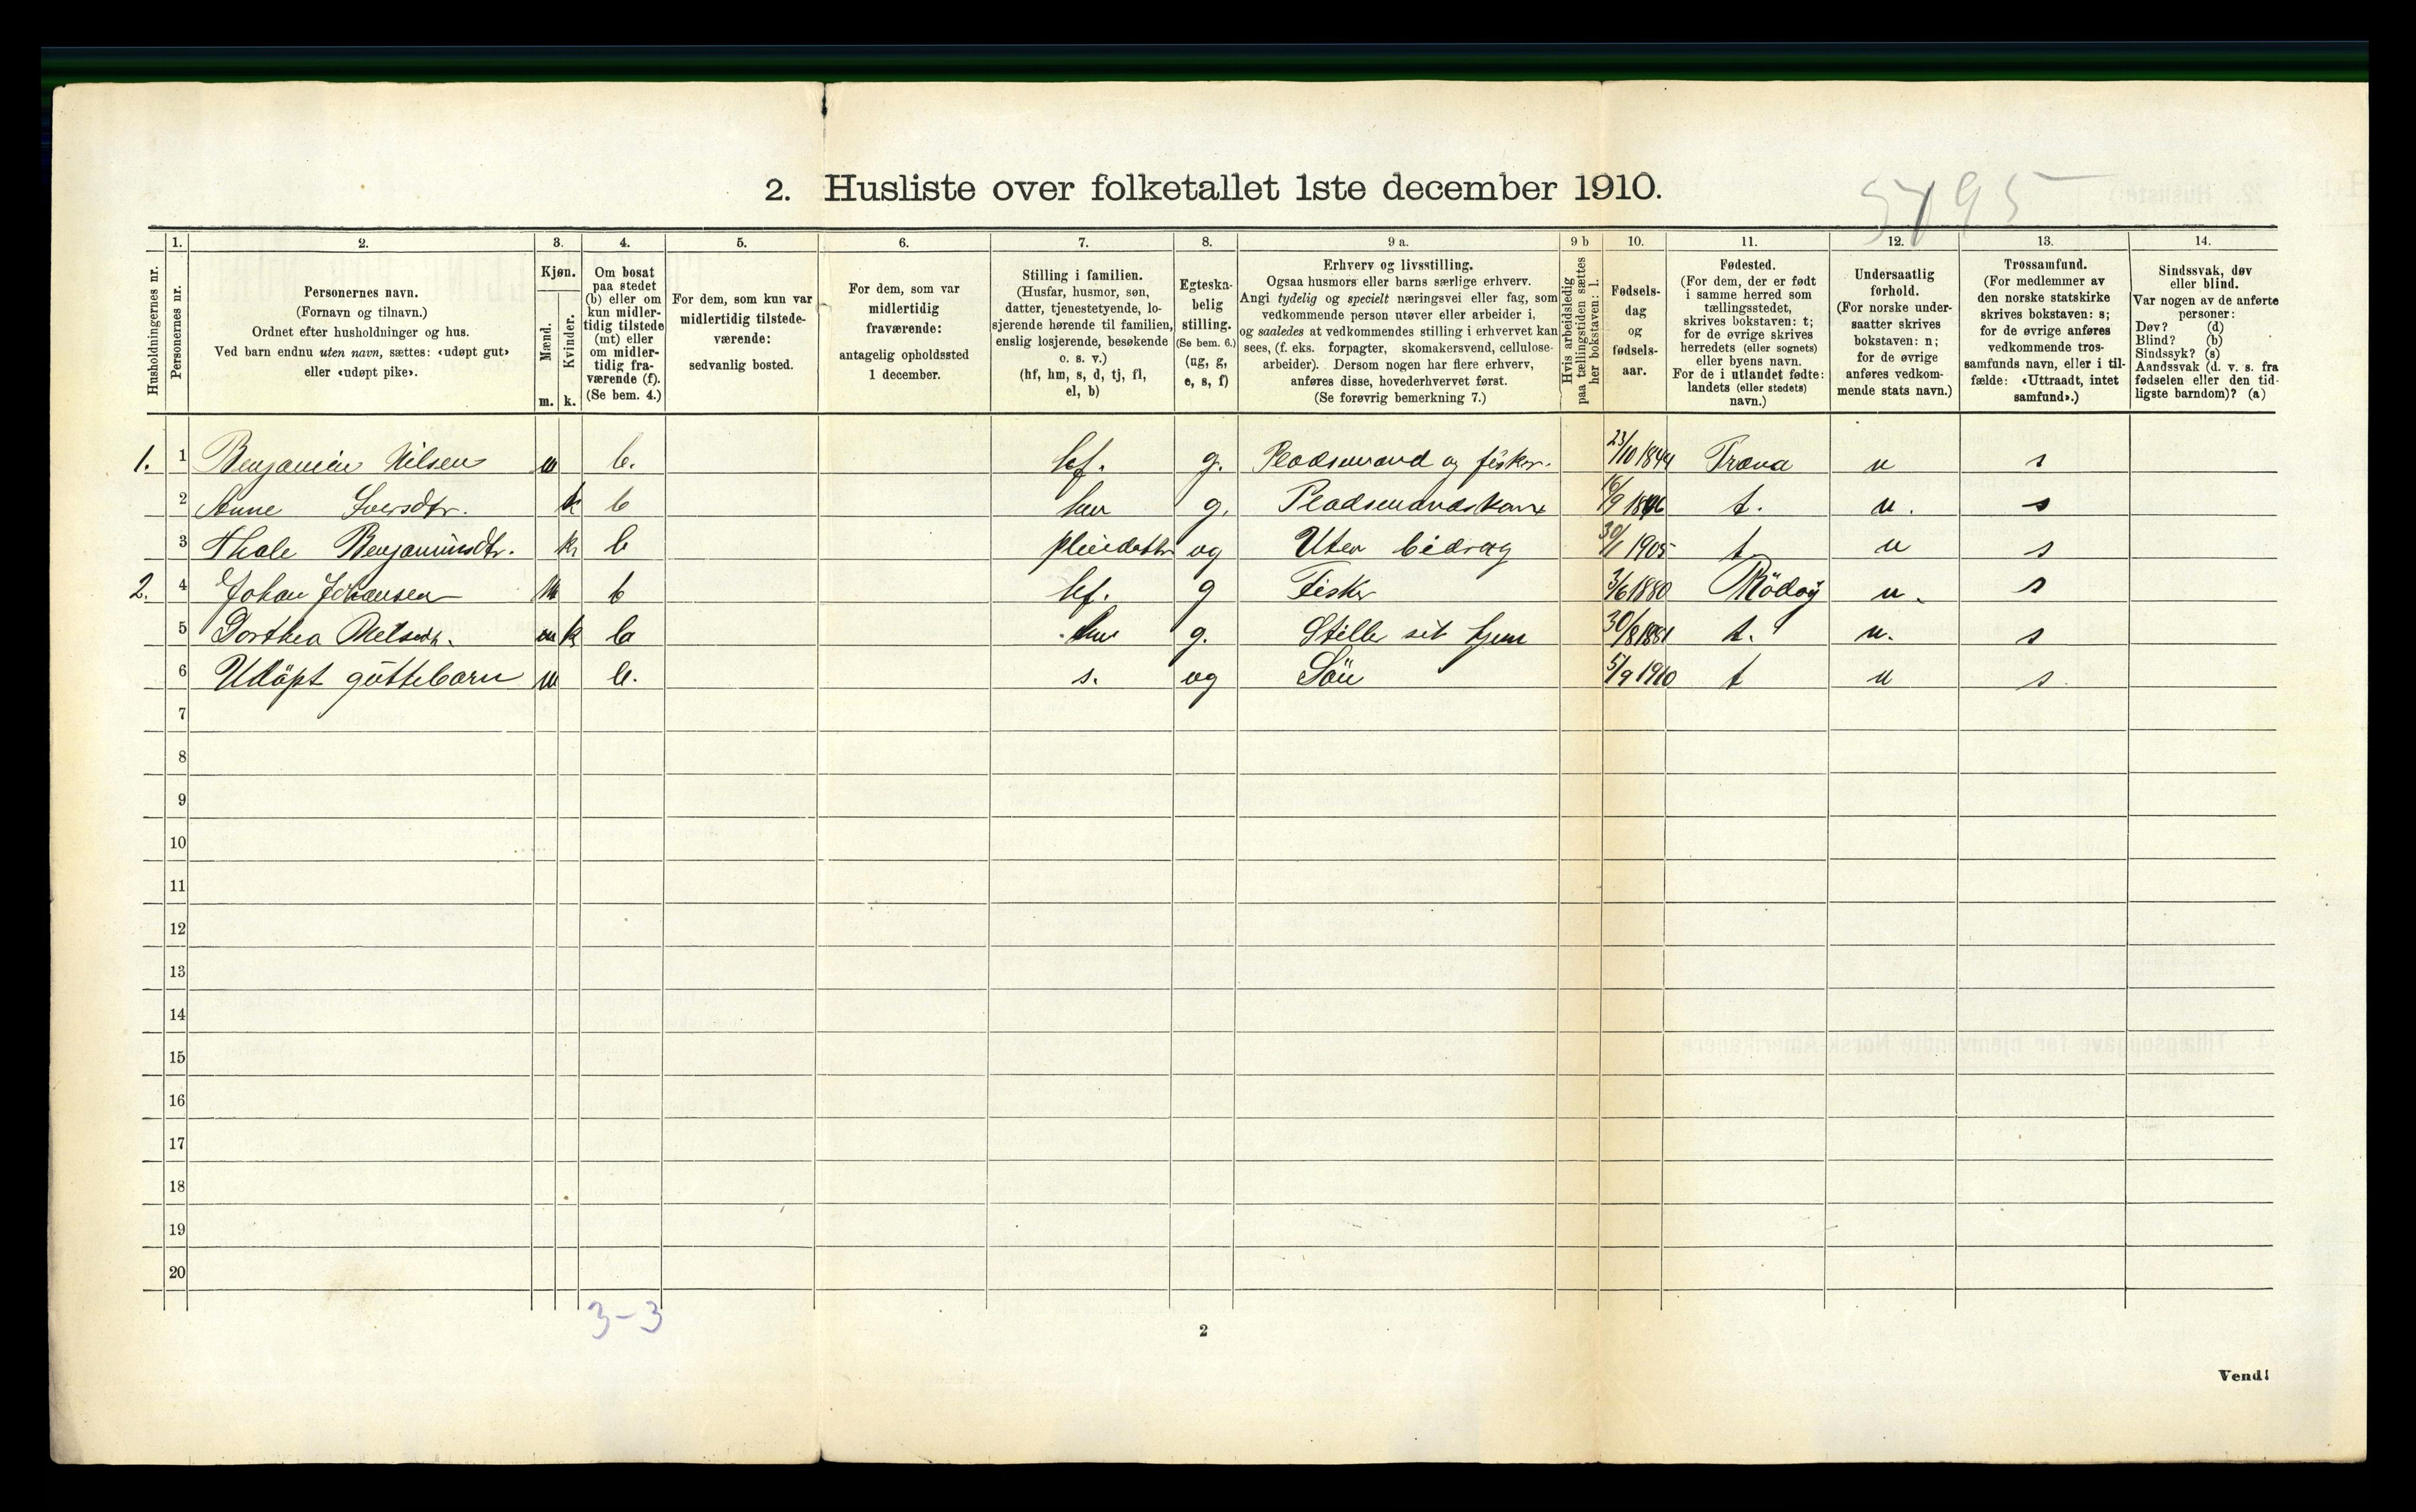 2. Husliste over folketallet 1ste december 1910.
5795
Husholdningernes nr.
1.
Personernes nr.
2.
Personernes navn.
(Fornavn og tilnavn.)
Ordnet efter husholdninger og hus.
Ved barn endnu uten navn, sættes: «udøpt gut»
eller «udøpt pike».
3.
Kjøn.
Mænd.
Kvinder.
m. k.
4.
Om bosat
paa stedet
(b) eller om
kun midler-
tidig tilstede
(mt) eller
om midler-
tidig fra-
værende (f).
(Se bem. 4.)
5.
For dem, som kun var
midlertidig tilstede-
værende:
sedvanlig bosted.
6.
For dem, som var
midlertidig
fraværende:
antagelig opholdssted
1 december.
7.
Stilling i familien.
(Husfar, husmor, søn,
datter, tjenestetyende, lo-
sjerende hørende til familien,
enslig losjerende, besøkende
o. s. v.)
(hf, hm, s, d, tj, fl,
el, b)
8.
Egteska-
belig
stilling.
(Se bem. 6.)
(ug, g,
e, s, f)
9 a.
Erhverv og livsstilling.
Ogsaa husmors eller barns særlige erhverv.
Angi tydelig og specielt næringsvei eller fag, som
vedkommende person utøver eller arbeider i,
og saaledes at vedkommendes stilling i erhvervet kan
sees, (f. eks. forpagter, skomakersvend, cellulose-
arbeider). Dersom nogen har flere erhverv,
anføres disse, hovederhvervet først.
(Se forøvrig bemerkning 7.)
9 b
Hvis arbeidsledig
paa tællingstiden sættes
her bokstaven: l.
10.
Fødsels-
dag
og
fødsels-
aar.
11.
Fødested.
(For dem, der er født
i samme herred som
tællingsstedet,
skrives bokstaven: t;
for de øvrige skrives
herredets (eller sognets)
eller byens navn.
For de i utlandet fødte:
landets (eller stedets)
navn.)
12.
Undersaatlig
forhold.
(For norske under-
saatter skrives
bokstaven: n;
for de øvrige
anføres vedkom-
mende stats navn.)
13.
Trossamfund.
(For medlemmer av
den norske statskirke
skrives bokstaven: s;
for de øvrige anføres
vedkommende tros-
samfunds navn, eller i til-
fælde: «Uttraadt, intet
samfund».)
14.
Sindssvak, døv
eller blind.
Var nogen av de anførte
personer:
Døv? (d)
Blind? (b)
Sindssyk? (s)
Aandssvak (d. v. s. fra
fødselen eller den tid-
ligste barndom)? (a)
1. 1 Benjamin Nilsen m b. hf. g. Pladsemand og fisker. 23/10 1844 Træna n s
2 Anne Iversdtr. k b hm g. Pladsemandskone 16/9 1846 t. n. s
3 Thale Benjaminsdtr. k b pleiedatter ug Uten bidrag 30/1 1905 t n s
2. 4 Johan Johansen m b hf. g Fisker 3/6 1880 Rödöy n. s
5 Dorthea k b hm g. Stelle sit hjem 30/8 1881 t. n. s
6 Udöpt guttebarn m b. s. ug Sön 5/9 1910 t n s
7
8
9
10
11
12
13
14
15
16
17
18
19
20
3-3
2
Vend!